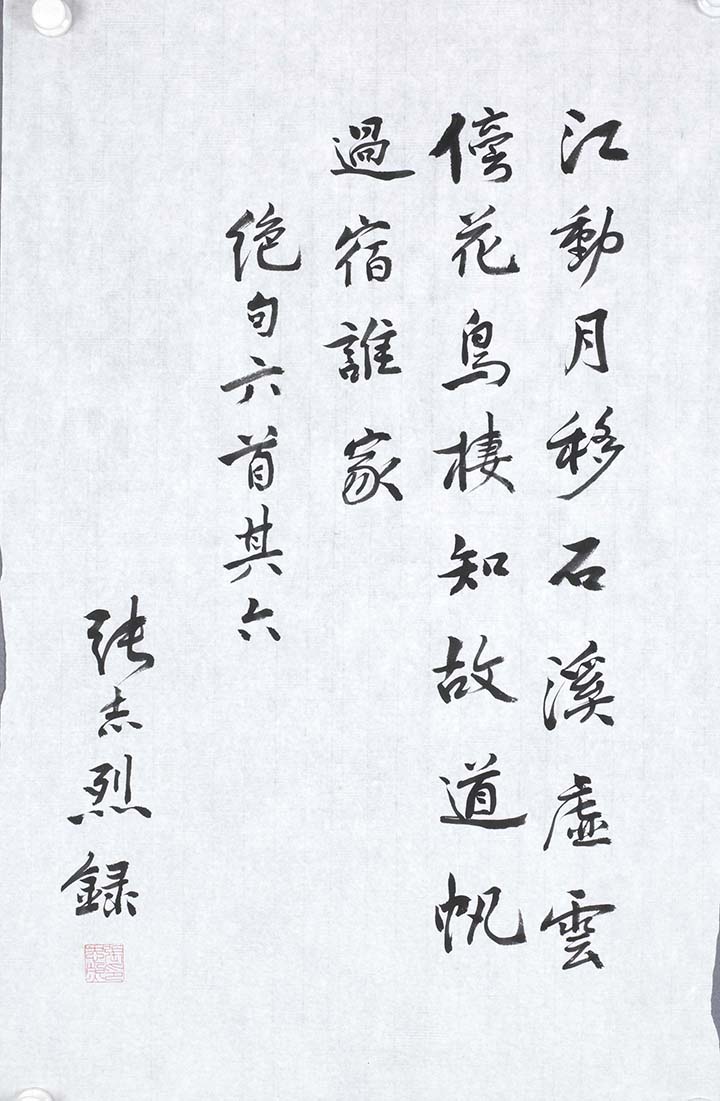 江動月移石溪虛雲
傍花鳥棲知故道帆
過宿誰家
絕句六首其六
張志烈錄